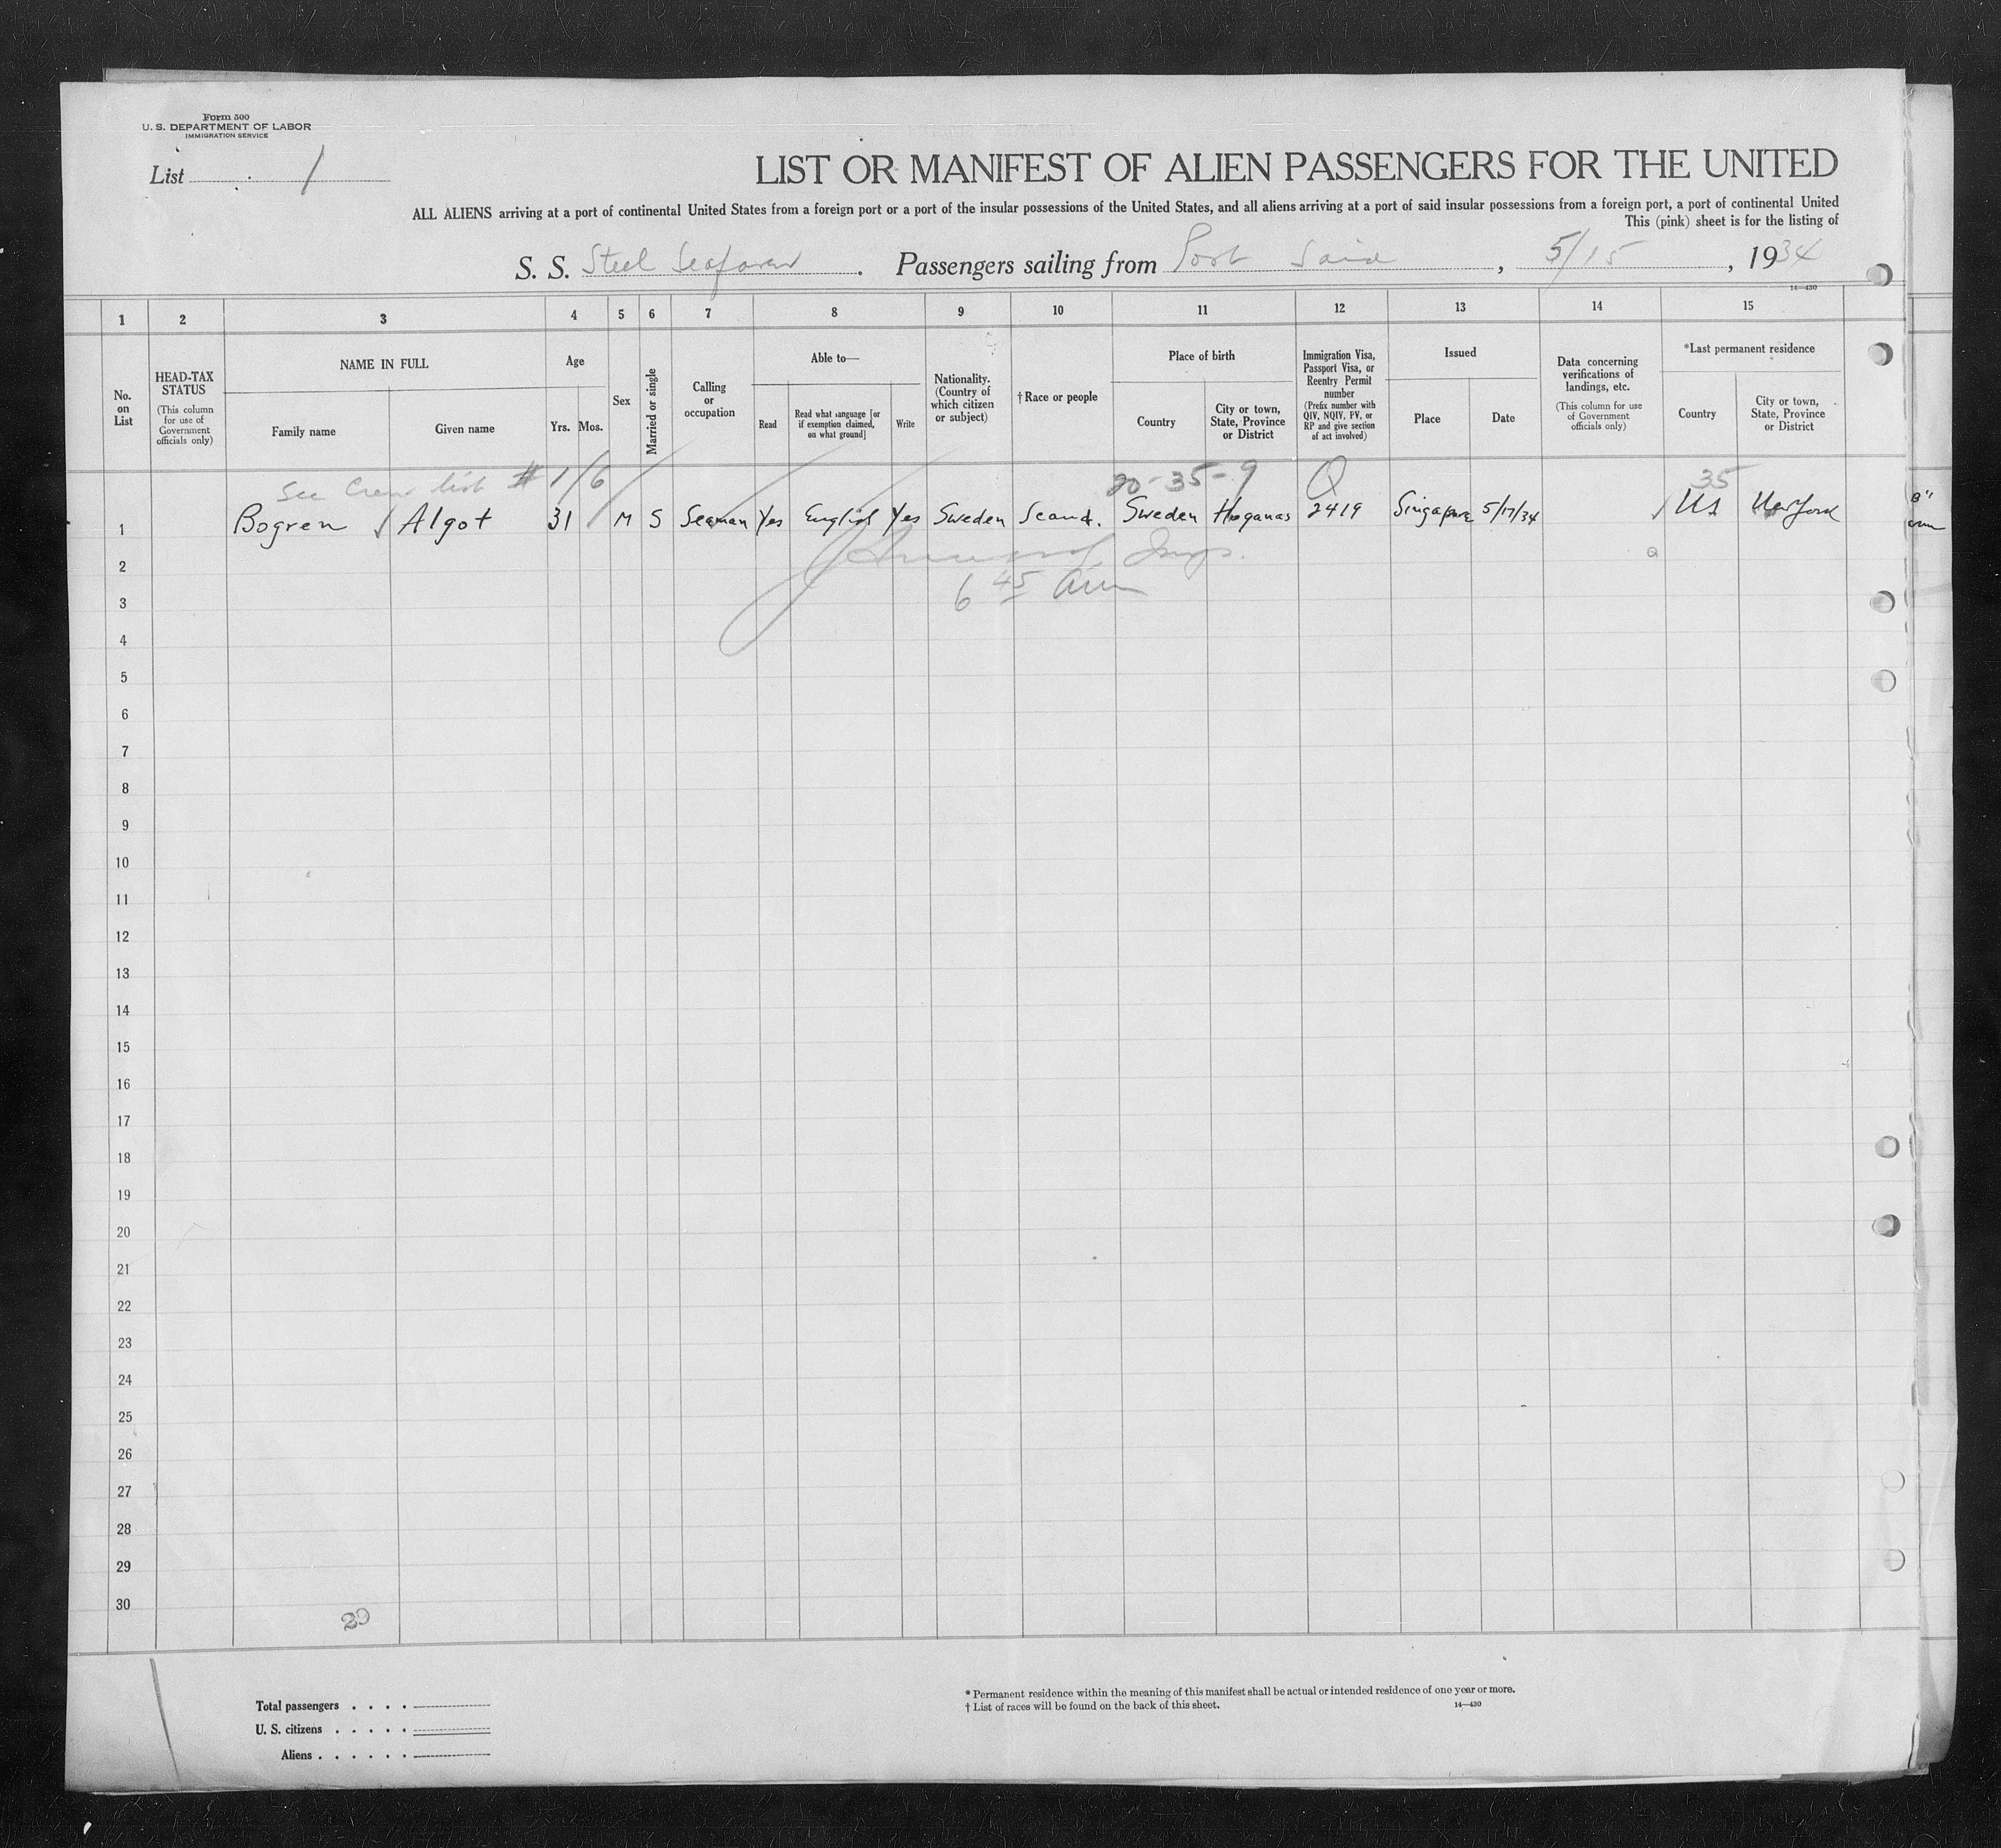 Form 500
U. S. DEPARTMENT OF LABOR
IMMIGRATION SERVICE
List 1
LIST OR MANIFEST OF ALIEN PASSENGERS FOR THE UNITED
ALL ALIENS arriving at a port of continental United States from a foreign port or a port of the insular possessions of the United States, and all aliens arriving at a port of said insular possessions from a foreign port, a port of continental United
This (pink) sheet is for the listing of
S. S. Steel Seafarer. Passengers sailing from Port Said, 5/15, 1934
14—430
1 2 3 4 5 6 7 8 9 10 11 12 13 14 15
No. on List
HEAD-TAX STATUS (This column for use of Government officials only)
NAME IN FULL
Family name Given name
Age
Yrs. Mos.
Sex
Married or single
Calling or occupation
Able to—
Read
Read what language [or if exemption claimed, on what ground]
Write
Nationality. (Country of which citizen or subject)
†Race or people
Place of birth
Country
City or town, State, Province or District
Immigration Visa, Passport Visa, or Reentry Permit number (Prefix number with QIV, NQIV, PV, or RP and give section of act involved)
Issued
Place Date
Data concerning verifications of landings, etc. (This column for use of Government officials only)
*Last permanent residence
Country
City or town, State, Province or District
See Crew list # 1/6 20-35-9 Q 35
1 Bogren Algot 31 M S Seaman Yes English Yes Sweden Scand. Sweden Hoganas 2419 Singapore 5/17/34 US New York
2 Q
3 6 45 am
4
5
6
7
8
9
10
11
12
13
14
15
16
17
18
19
20
21
22
23
24
25
26
27
28
29
30
29
Total passengers . . . .
U. S. citizens . . . . .
Aliens . . . . . .
* Permanent residence within the meaning of this manifest shall be actual or intended residence of one year or more.
† List of races will be found on the back of this sheet.
14—430